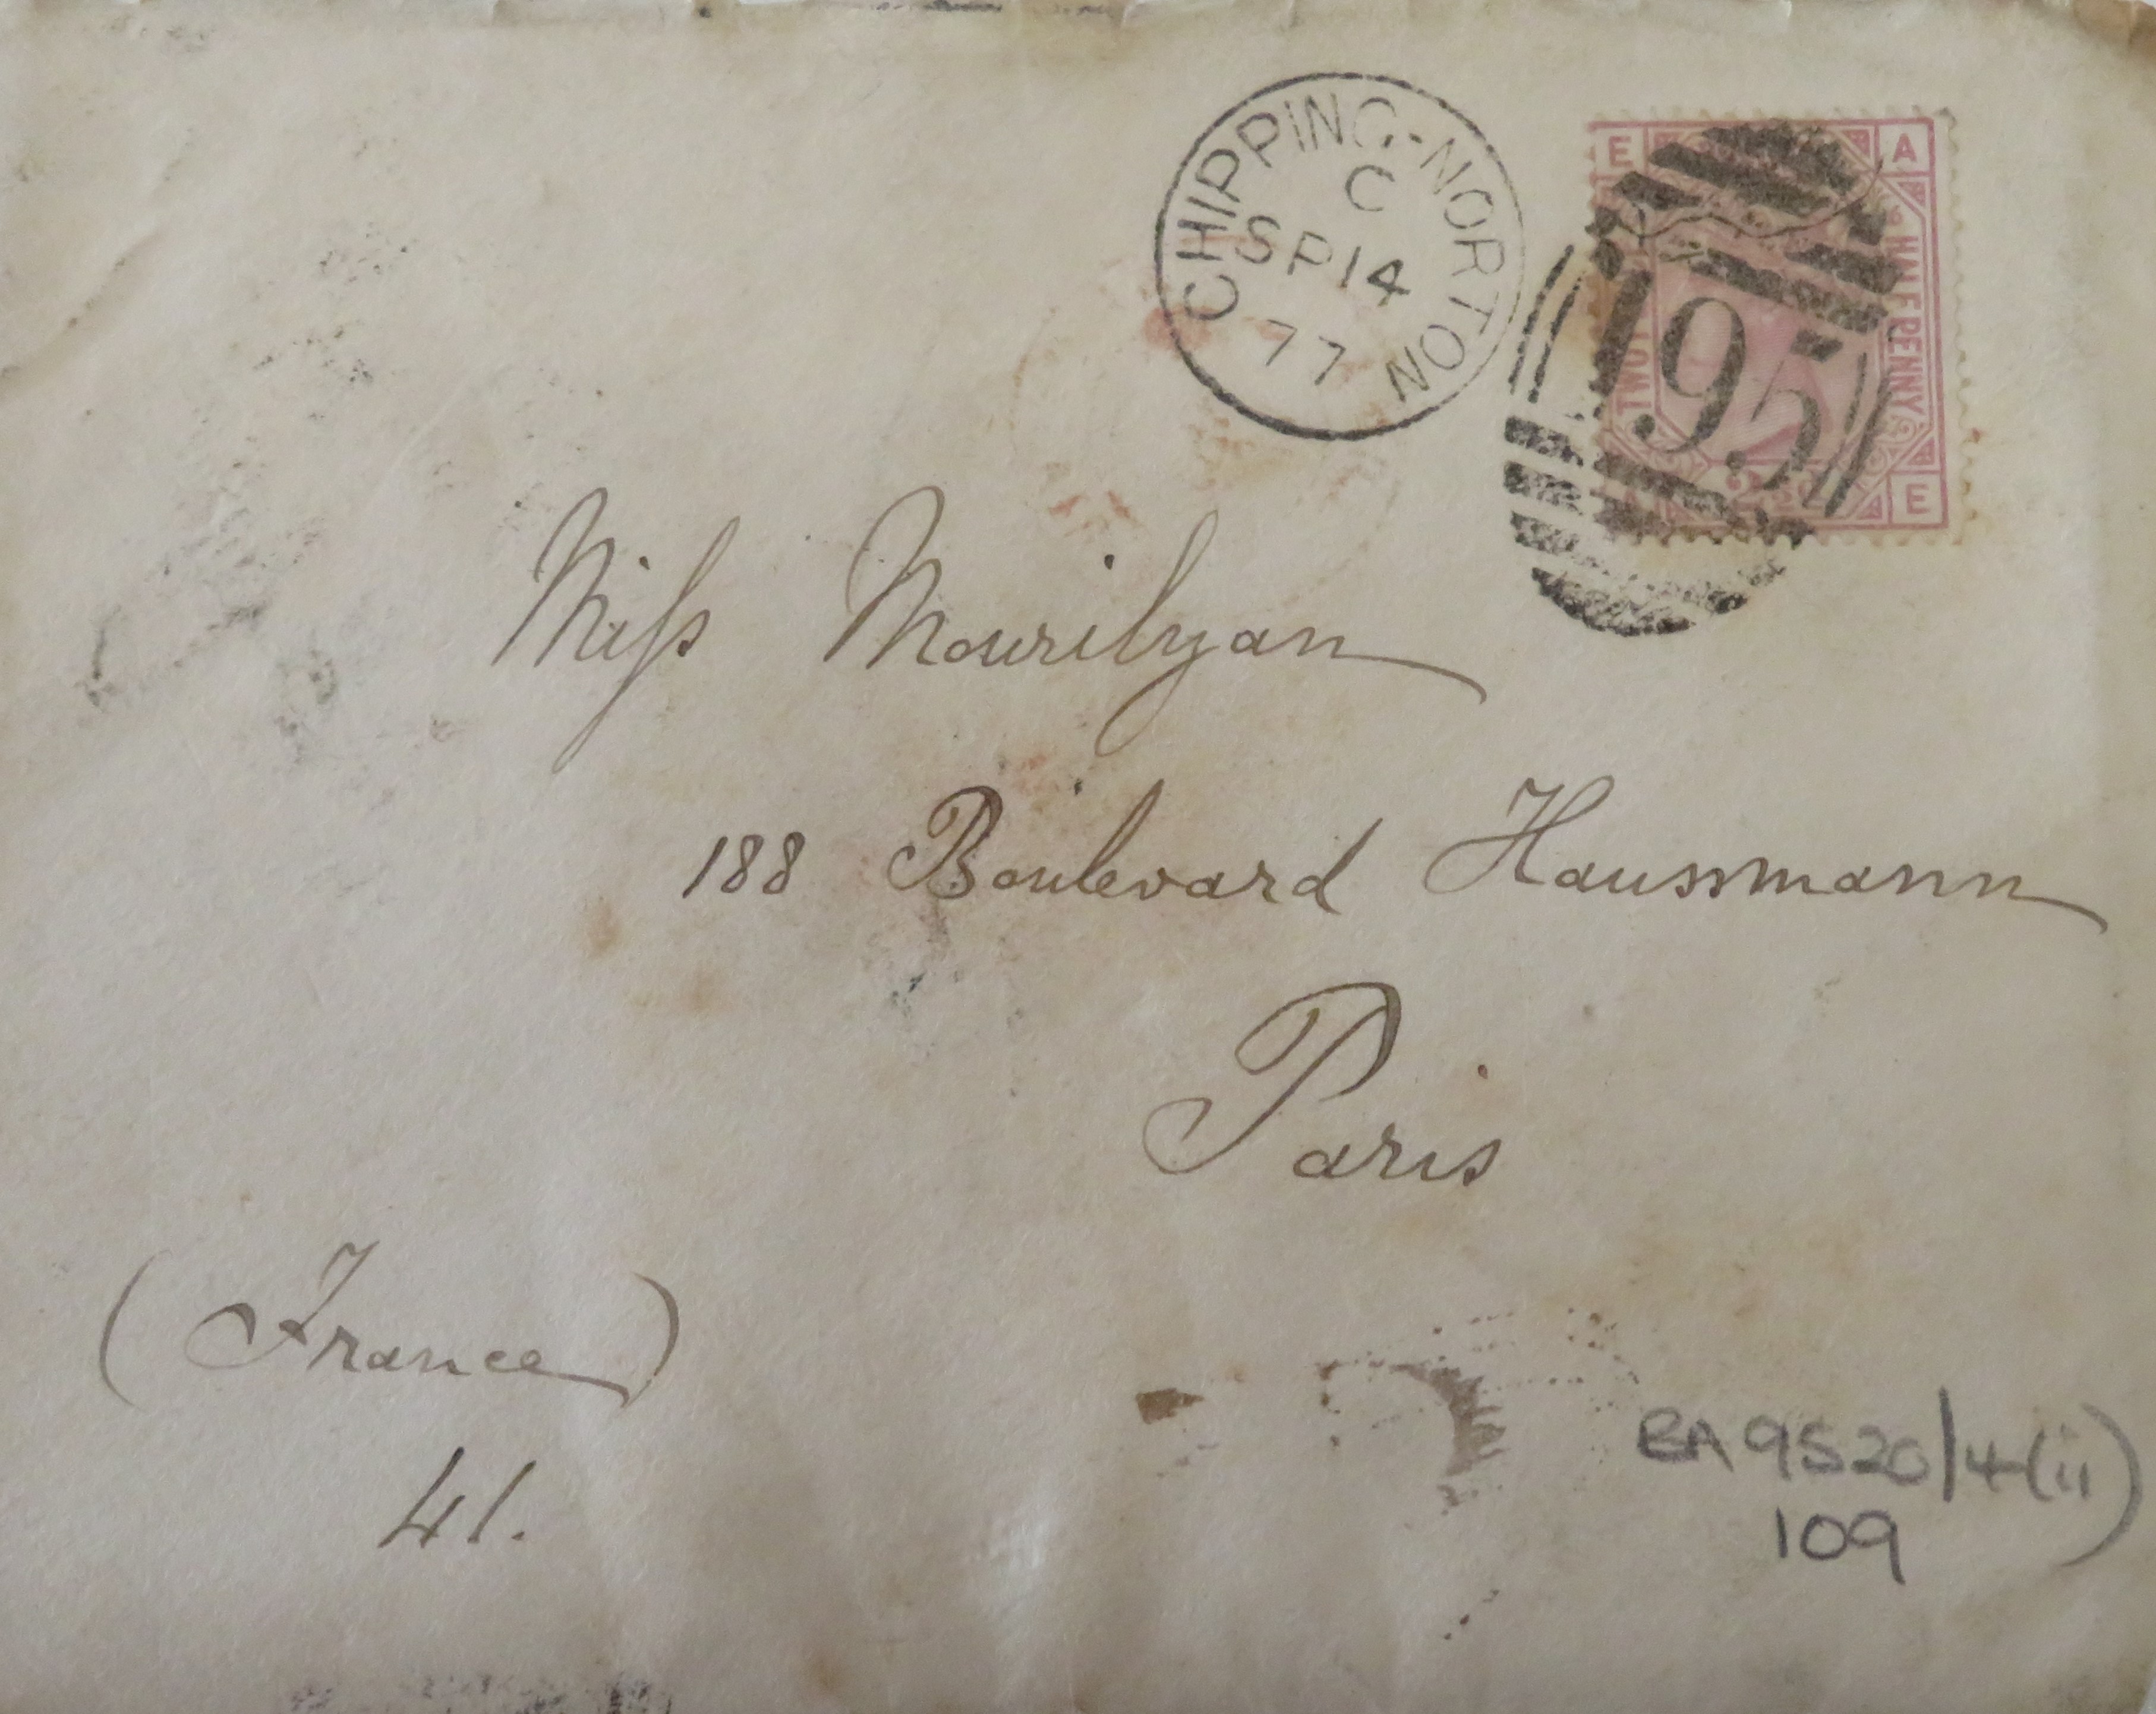 CHIPPING-NORTON
C
SP 14
77
195
E A
HALFPENNY
E
Miss Mourilyan
188 Boulevard Haussmann
Paris
(France)
41.
BA 9520/4(ii)
109